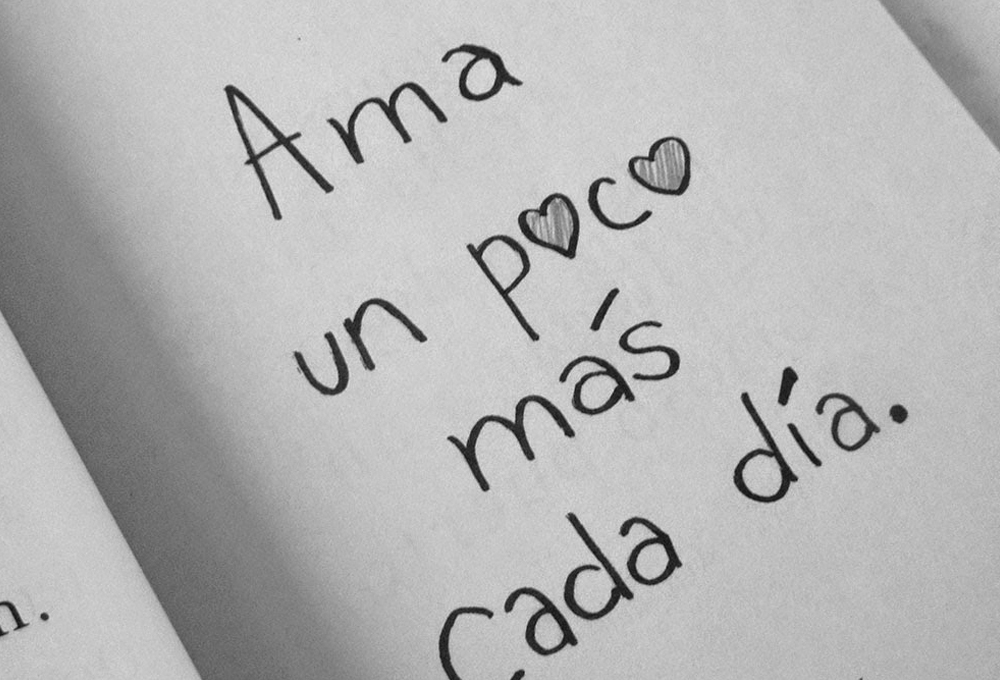 Ama
un poco
más
cada día.
n.